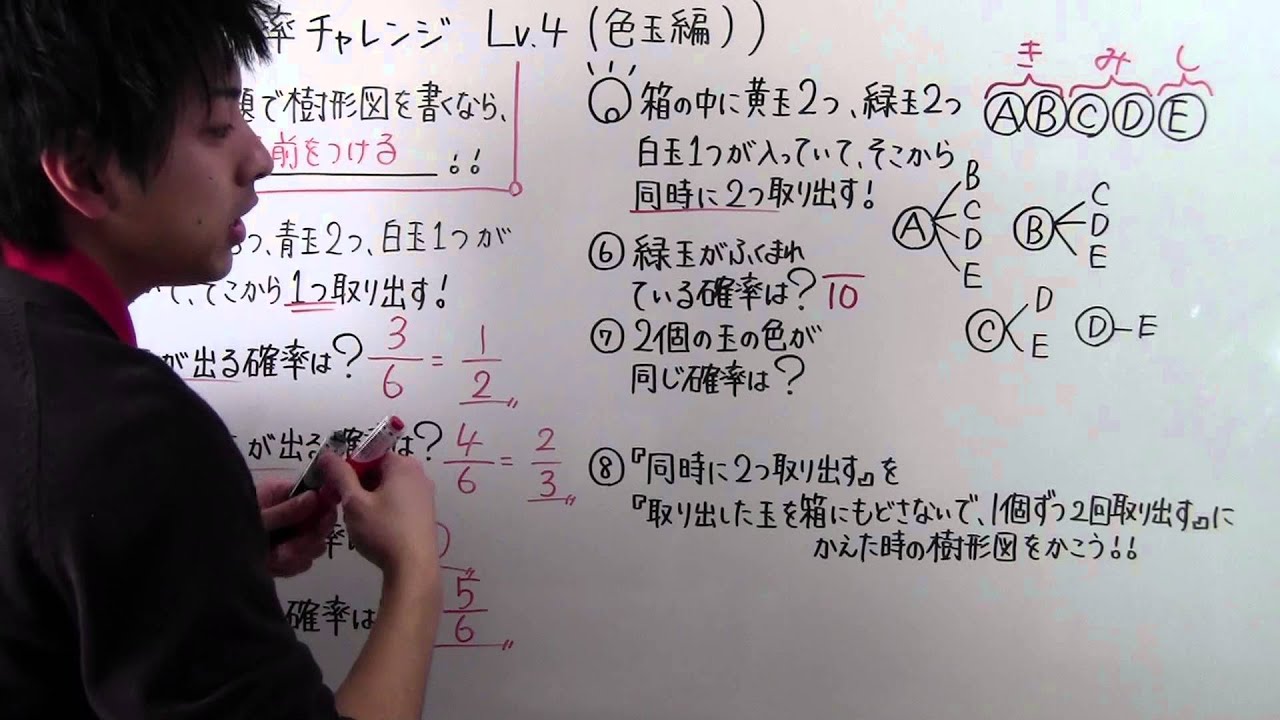 率チャレンジ Lv.4 (色玉編))
題で樹形図を書くなら、
前をつける!!
つ、青玉2つ、白玉1つが
て、そこから1つ取り出す!
が出る確率は? 3/6 = 1/2
が出る確率は? 4/6 = 2/3
率は
確率は 5/6
箱の中に黄玉2つ、緑玉2つ
白玉1つが入っていて、そこから
同時に2つ取り出す!
⑥ 緑玉がふくまれ
ている確率は? /10
⑦ 2個の玉の色が
同じ確率は?
き み し
Ⓐ Ⓑ Ⓒ Ⓓ Ⓔ
Ⓐ B C D E
Ⓑ C D E
Ⓒ D E
Ⓓ E
⑧『同時に2つ取り出す』を
『取り出した玉を箱にもどさないで、1個ずつ2回取り出す』に
かえた時の樹形図をかこう!!